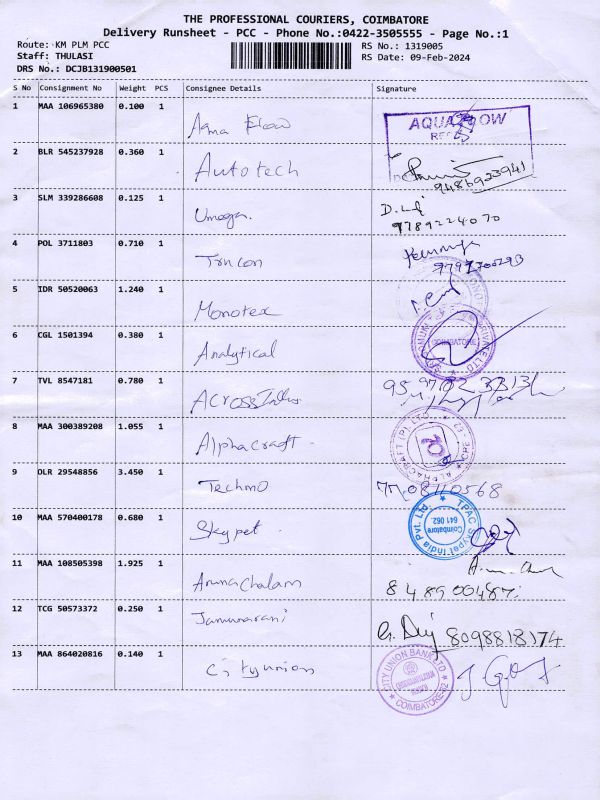 THE PROFESSIONAL COURIERS, COIMBATORE
Delivery Runsheet - PCC - Phone No.:0422-3505555 - Page No.:1
Route: KM PLM PCC
Staff: THULASI
DRS No.: DCJB131900501
RS No.: 1319005
RS Date: 09-Feb-2024
S No Consignment No Weight PCS Consignee Details Signature
1 MAA 106965380 0.100 1 Aqua Flow AQUA FLOW
2 BLR 545237928 0.360 1 Autotech
9486923941
3 SLM 339286608 0.125 1 Umoga.
9789224070
4 POL 3711803 0.710 1 Trucon
5 IDR 50520063 1.240 1 Monotex
6 CGL 1501394 0.380 1 Analytical COIMBATORE
7 TVL 8547181 0.780 1
8 MAA 300389208 1.055 1 Alphacraft ALPHACRAFT (P) LTD.
9 DLR 29548856 3.450 1 Techno
10 MAA 570400178 0.680 1 Skypet TPAC Skypet India Pvt. Ltd. Coimbatore 641 062.
11 MAA 108505398 1.925 1 Arunachalam
12 TCG 50573372 0.250 1 Jamunarani 8098818174
13 MAA 864020816 0.140 1 City union CITY UNION BANK LTD COIMBATORE